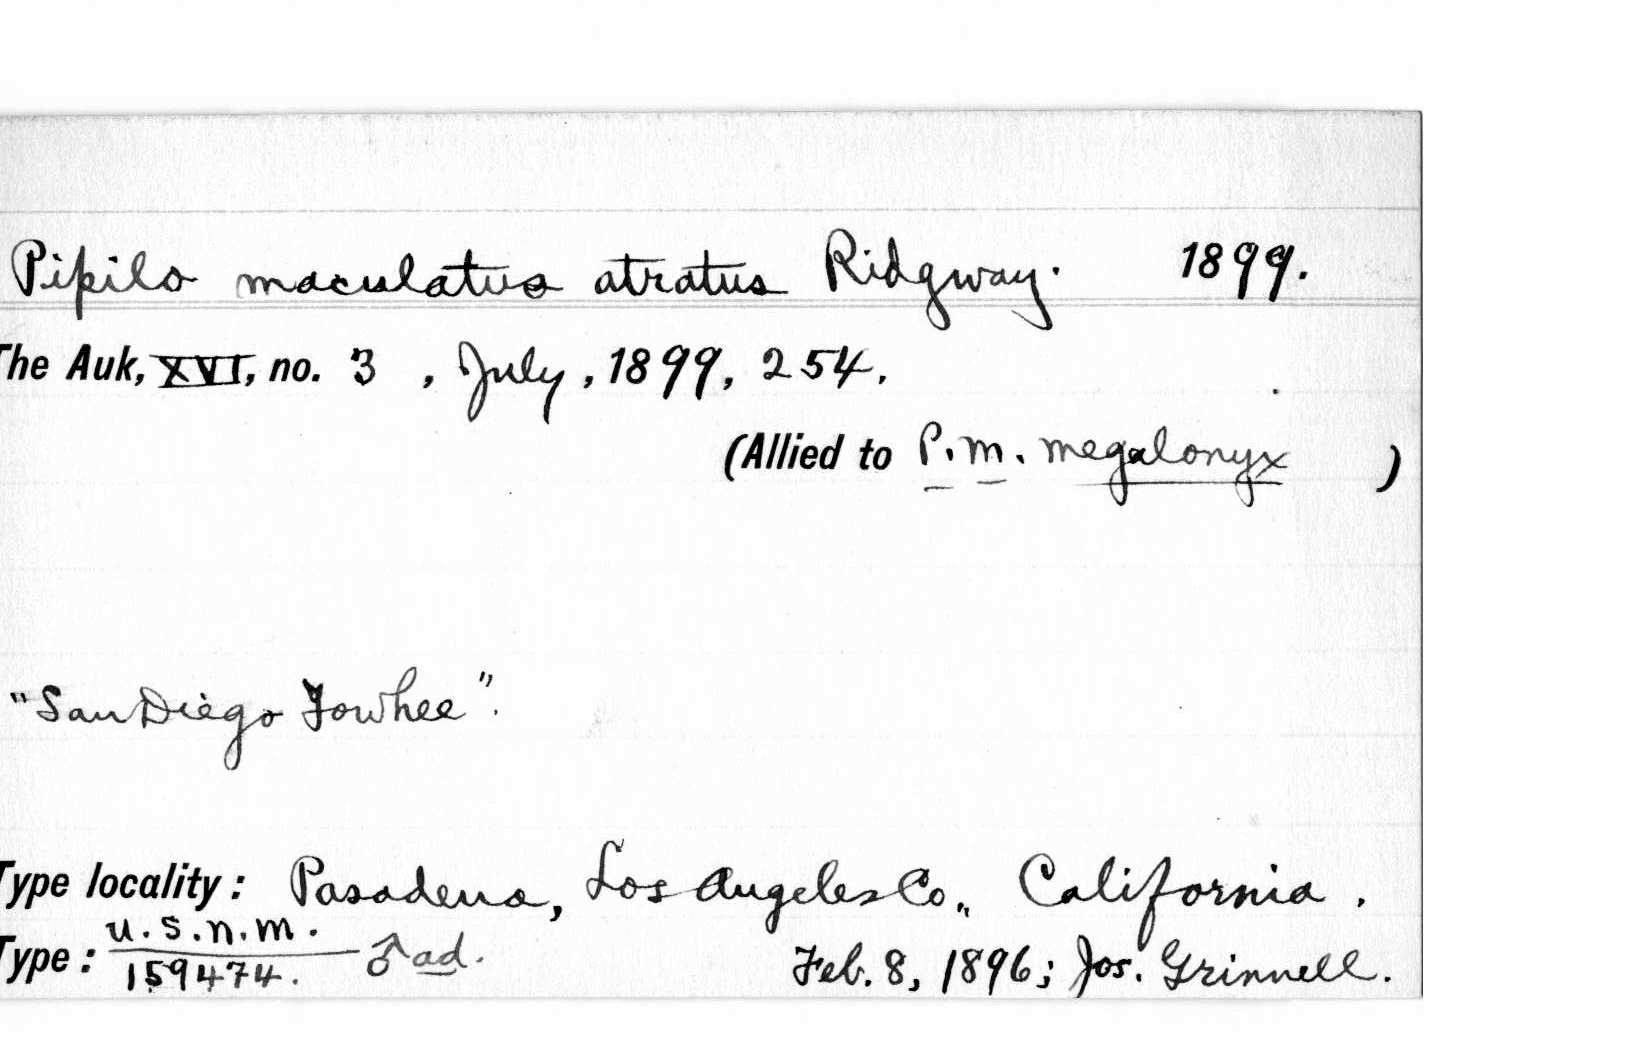 Pipilo maculatus atratus Ridgway. 1899.
The Auk, XVI, no. 3 , July , 1899, 254.
(Allied to P. m. megalonyx )
"San Diego Towhee".
Type locality : Pasadena, Los Angeles Co., California .
Type : U.S.N.M. 159474. ♂ ad. Feb. 8, 1896; Jos. Grinnell.